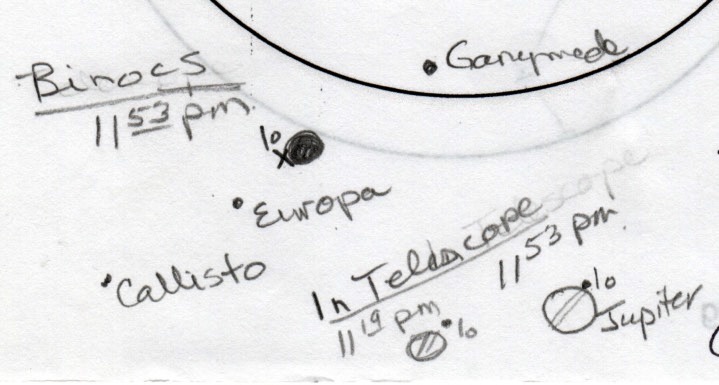 Ganymede
Binocs
11 53 pm.
Io
Europa
Callisto
In Telescope
11 19 pm
Io
11 53 pm.
Io
Jupiter